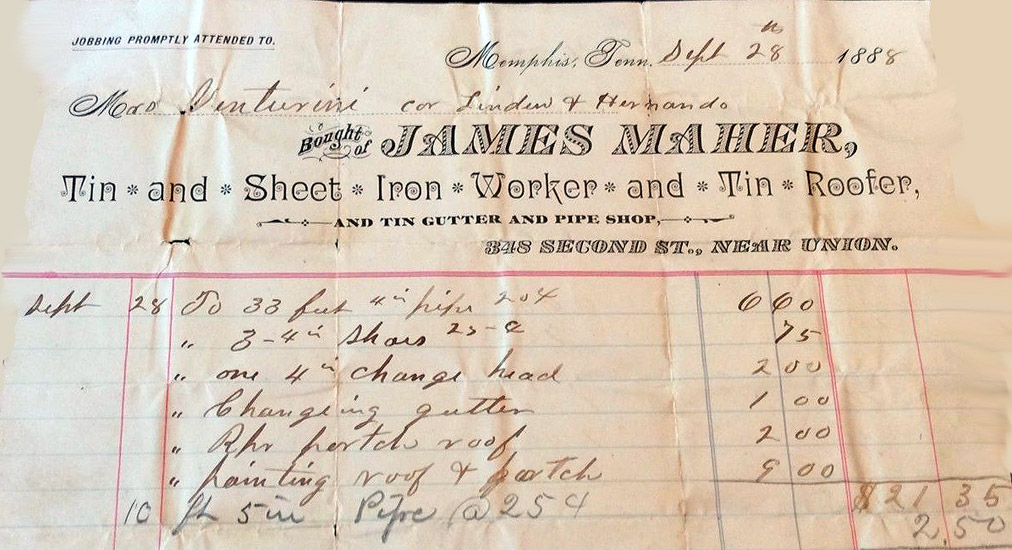 JOBBING PROMPTLY ATTENDED TO.
Memphis, Tenn. Sept 28th 1888
Mrs Venturini cor Linden & Hernando
Bought of JAMES MAHER,
Tin and Sheet Iron Worker and Tin Roofer,
AND TIN GUTTER AND PIPE SHOP,
348 SECOND ST., NEAR UNION.
Sept 28 To 33 feet 4 in pipe 20¢ 6 60
" 3-4 in Shoes 25-¢ 75
" one 4 in change head 2 00
" Changeing gutter 1 00
" Rpr portch roof 2 00
" painting roof & portch 9 00
$21 35
10 ft 5 in Pipe @ 25¢ 2.50